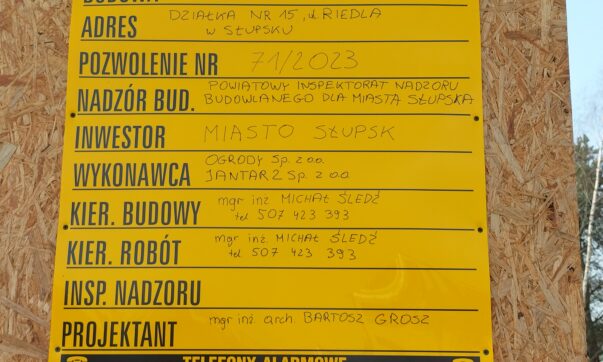 BUDOWA
ADRES DZIAŁKA NR 15, ul. RIEDLA
W SŁUPSKU
POZWOLENIE NR 71/2023
NADZÓR BUD. POWIATOWY INSPEKTORAT NADZORU
BUDOWLANEGO DLA MIASTA SŁUPSKA
INWESTOR MIASTO SŁUPSK
WYKONAWCA OGRODY Sp. z o.o.
JANTAR 2 Sp. z o.o.
KIER. BUDOWY mgr inż. MICHAŁ ŚLEDŹ
tel 507 423 393
KIER. ROBÓT mgr inż. MICHAŁ ŚLEDŹ
tel 507 423 393
INSP. NADZORU
PROJEKTANT mgr inż. arch. BARTOSZ GROSZ
TELEFONY ALARMOWE